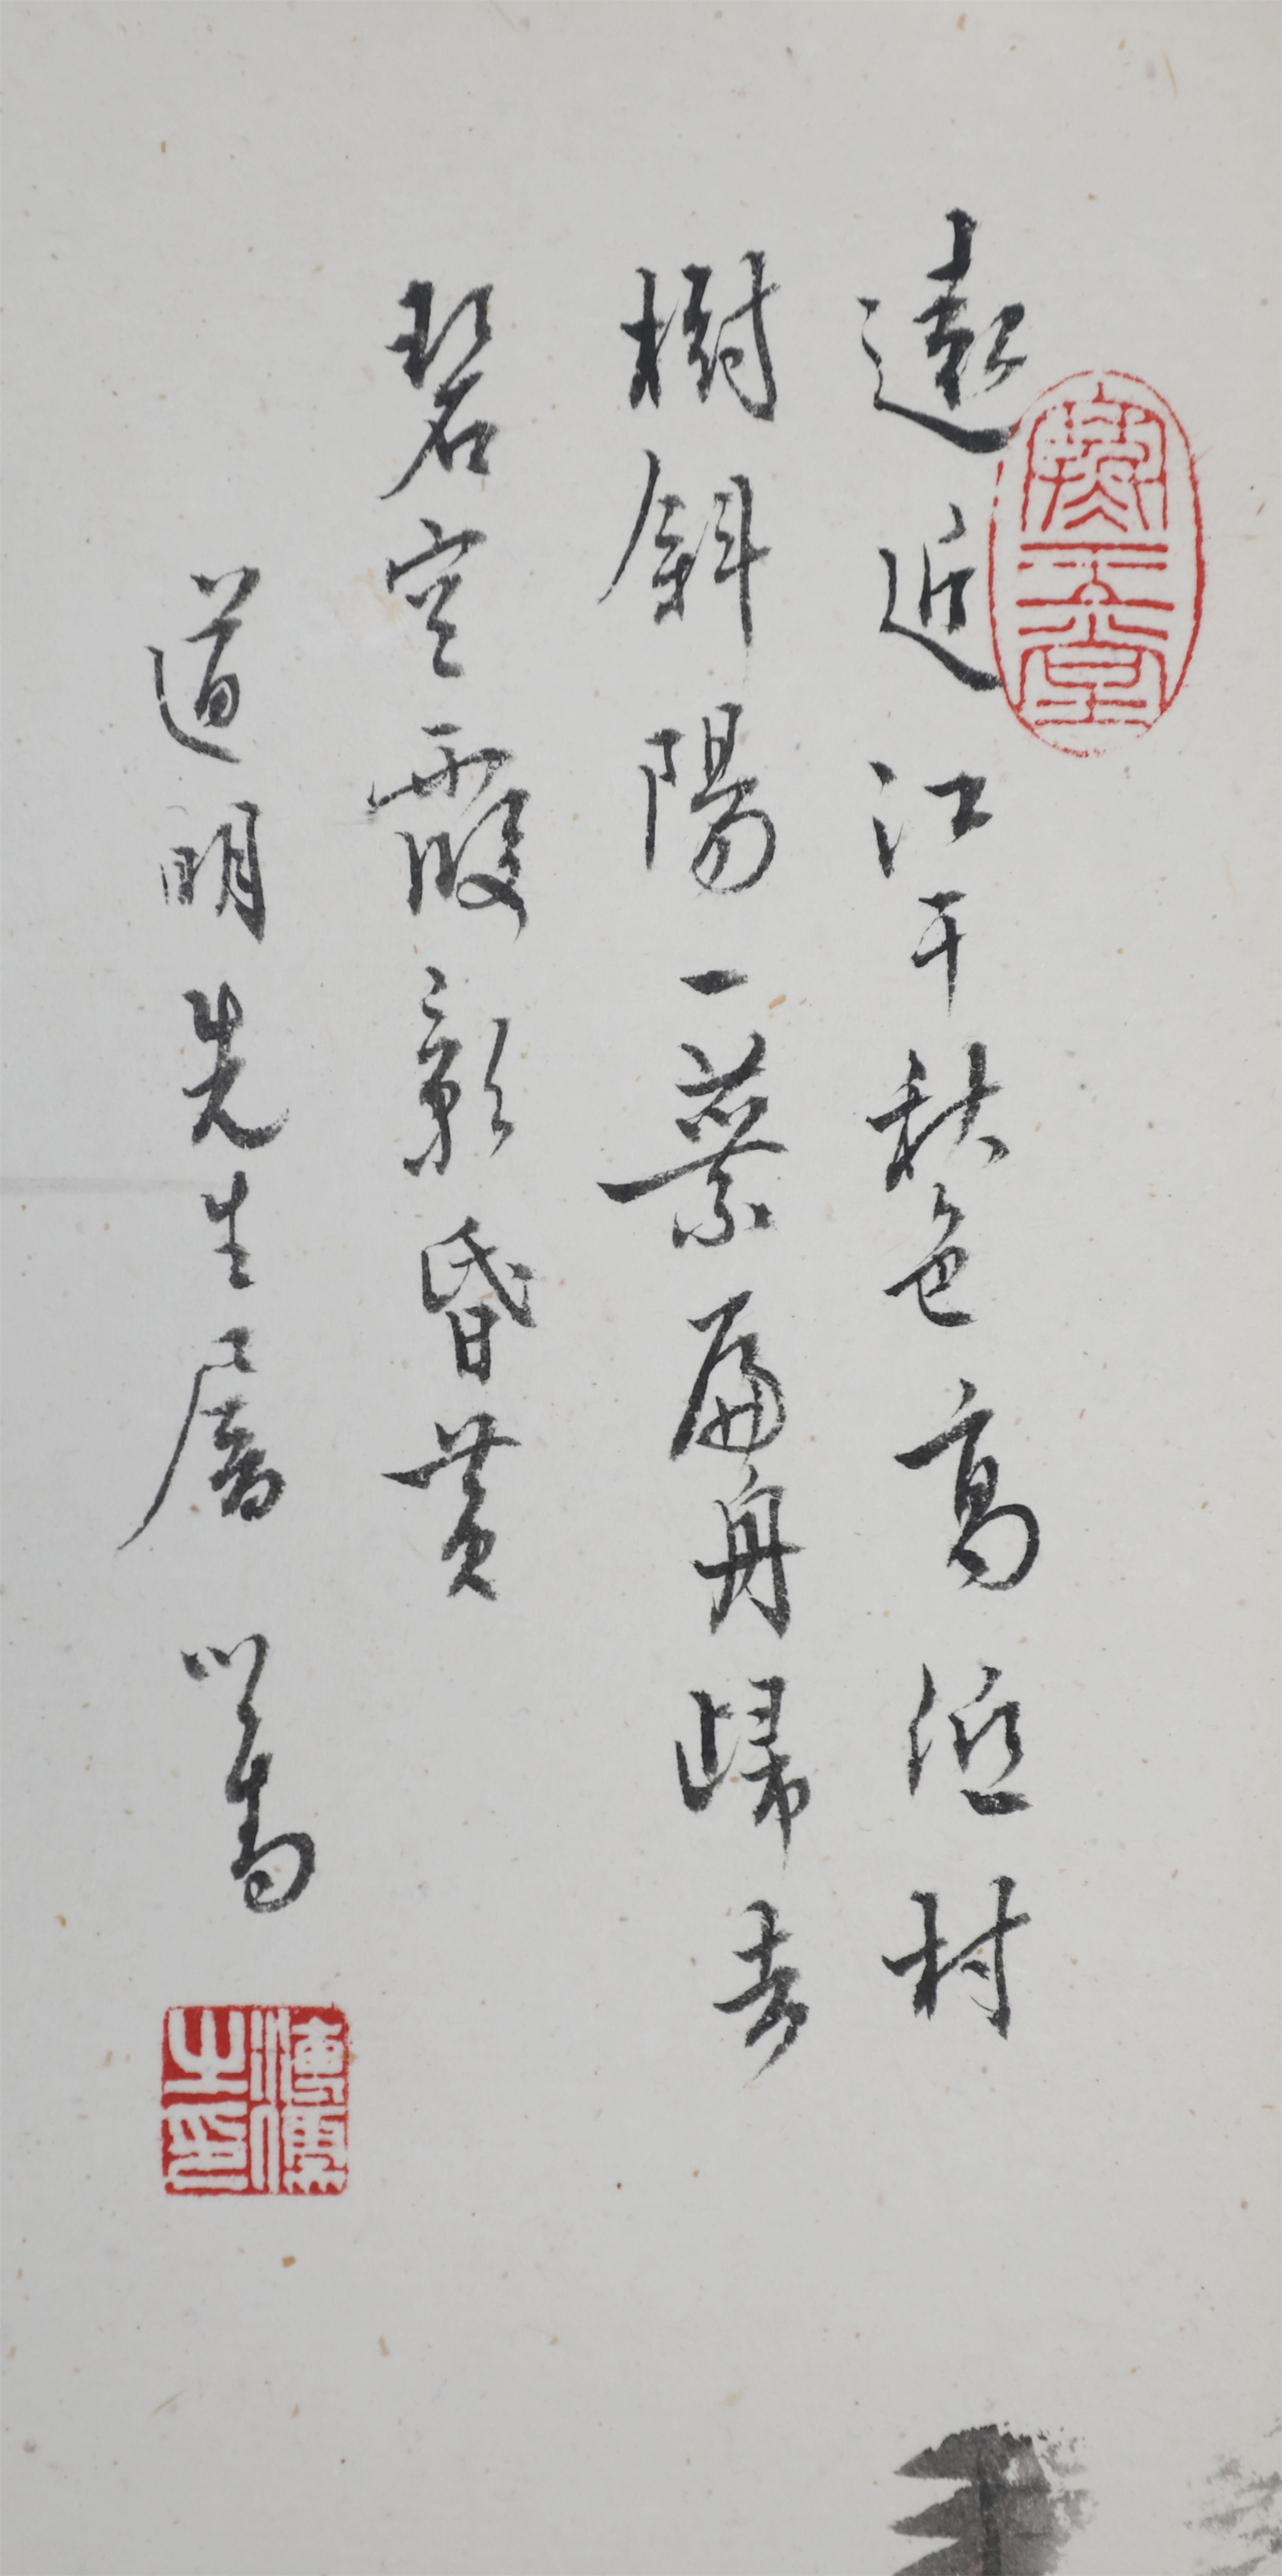 遠近江干秋色高低村
樹斜陽一葉扁舟歸去
碧空霞影昏黃
道明先生屬 心畬
寒玉堂
溥儒之印